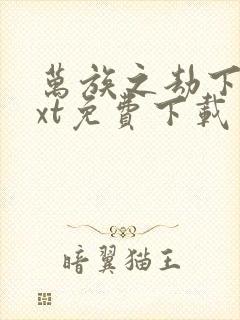 萬族之劫下
xt免費下載
暗翼猫王